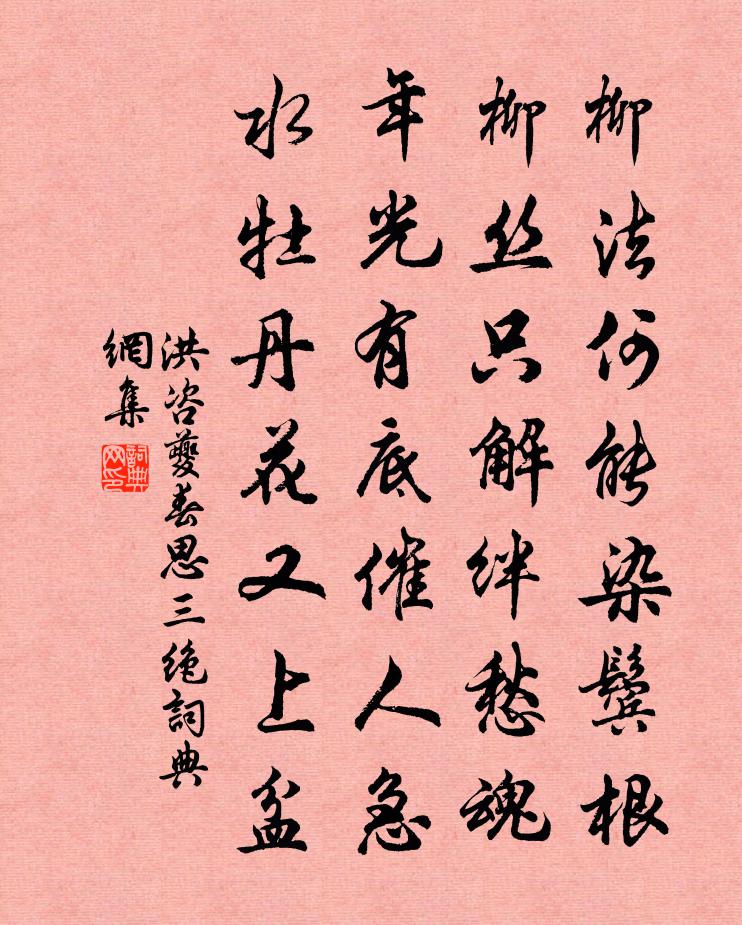 柳法何能染鬓根
柳丝只解绊愁魂
年光有底催人急
水牡丹花又上盆
洪咨夔春思三绝詞典
網集
詞典
网印